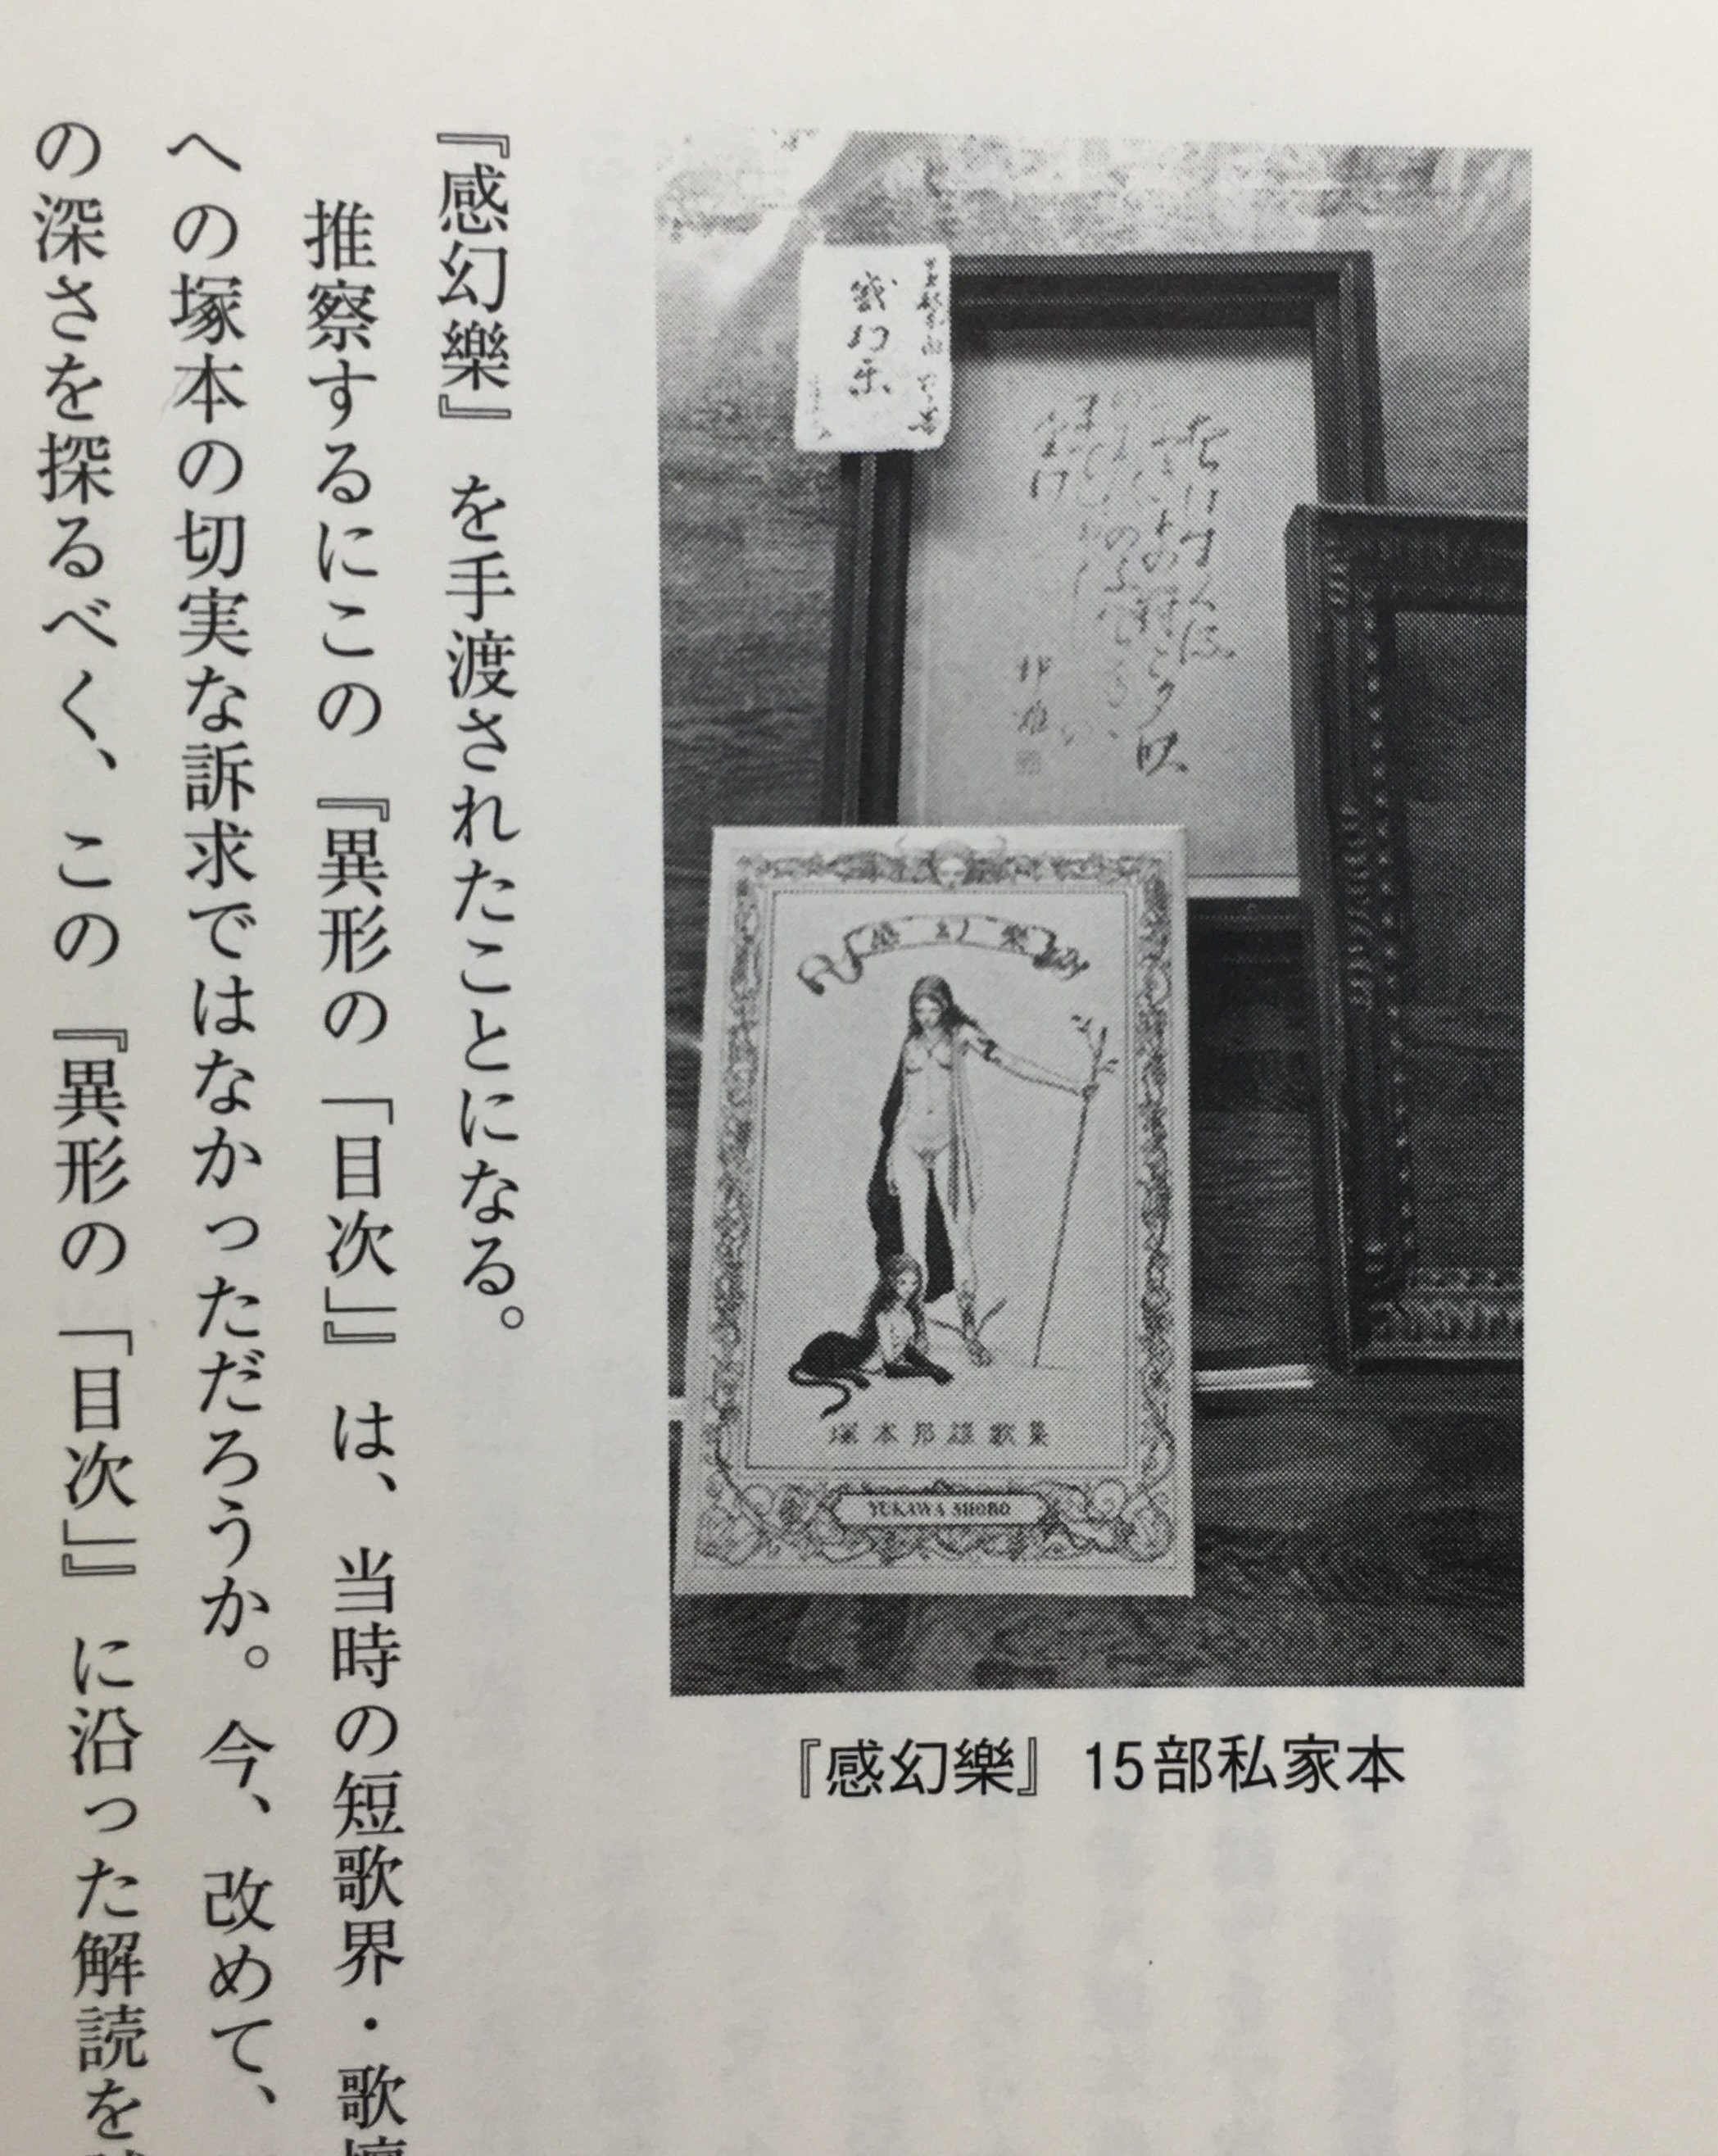 感幻樂
邦雄
感幻樂
塚本邦雄歌集
YUKAWA SHOBO
『感幻樂』15部私家本
『感幻樂』を手渡されたことになる。
推察するにこの『異形の「目次」』は、当時の短歌界・歌壇
への塚本の切実な訴求ではなかっただろうか。今、改めて、
の深さを探るべく、この『異形の「目次」』に沿った解読を